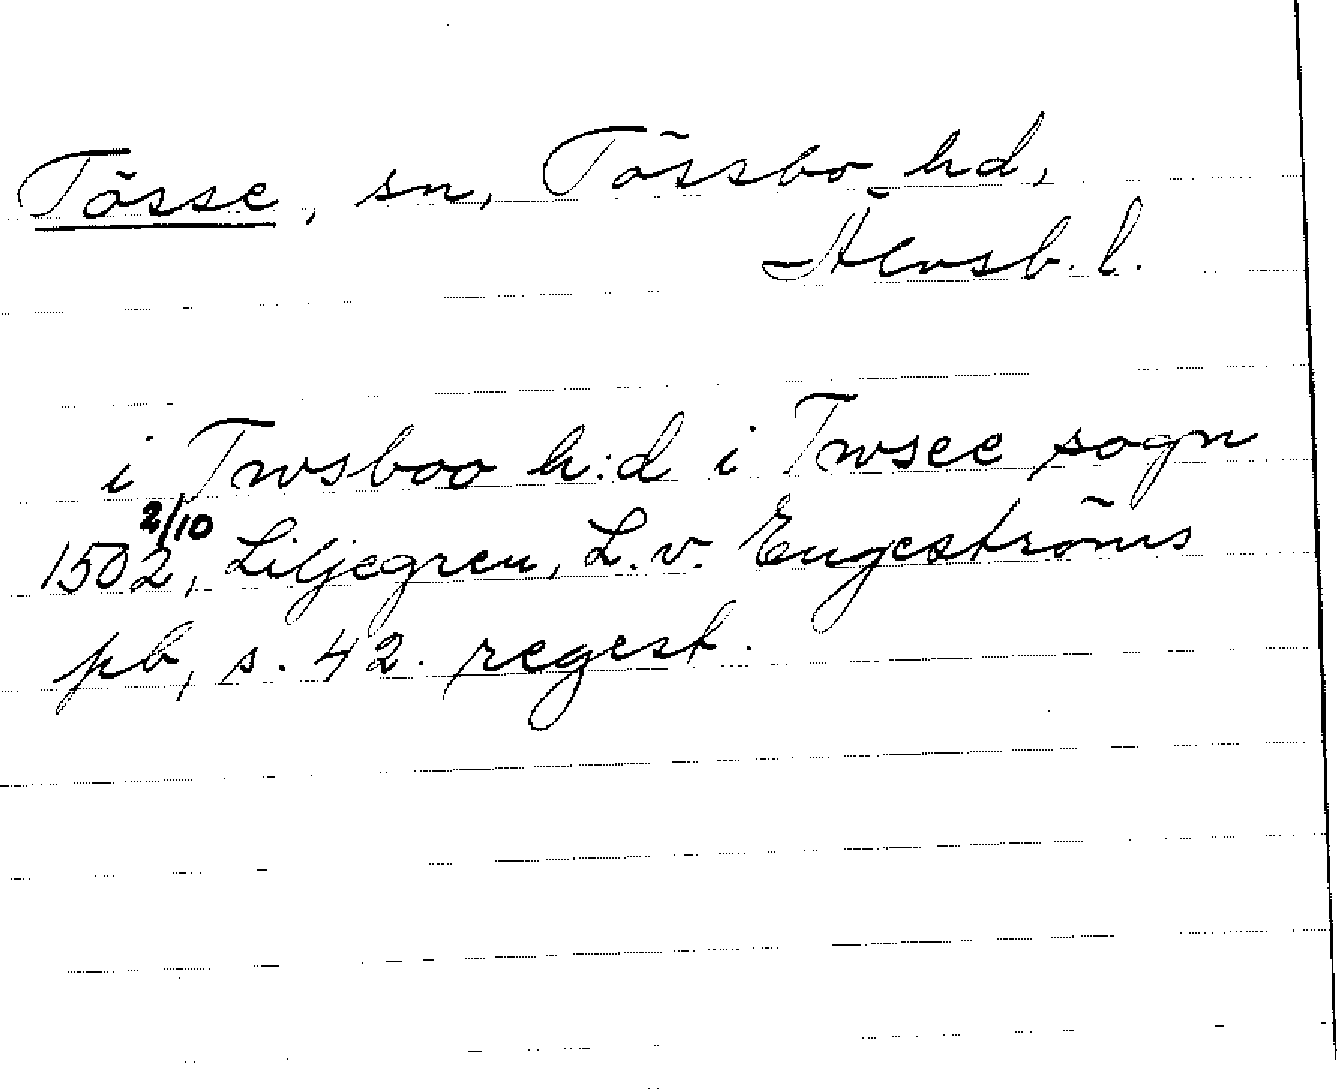 Tösse, sn, Tössbo hd,
Älvsb. l.
i Twsboo h:d i Twsee sogn
1502 2/10, Liljegren, L.v. Engeströms
pb, s. 42. regest.